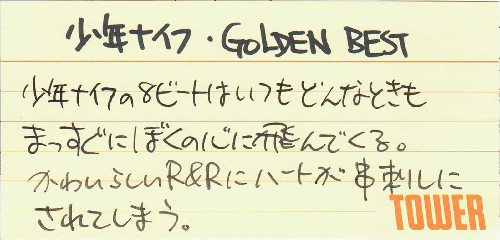 少年ナイフ・GOLDEN BEST
少年ナイフの8ビートはいつもどんなときも
まっすぐにぼくの心に飛んでくる。
かわいらしいR&Rにハートが串刺しに
されてしまう。
TOWER